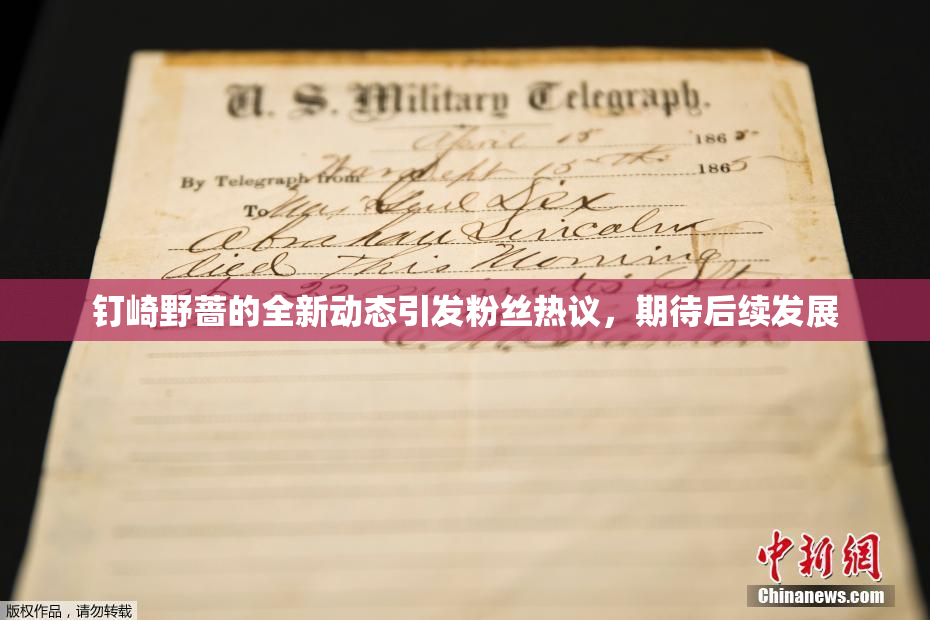 U. S. Military Telegraph.
April 15 1865
By Telegraph from War Dept 15th 1865
To Maj Genl Dix
Abraham Lincoln
died This Morning
at 22 minutes after
钉崎野蔷的全新动态引发粉丝热议，期待后续发展
E. M. Stanton
中新网
Chinanews.com
版权作品，请勿转载